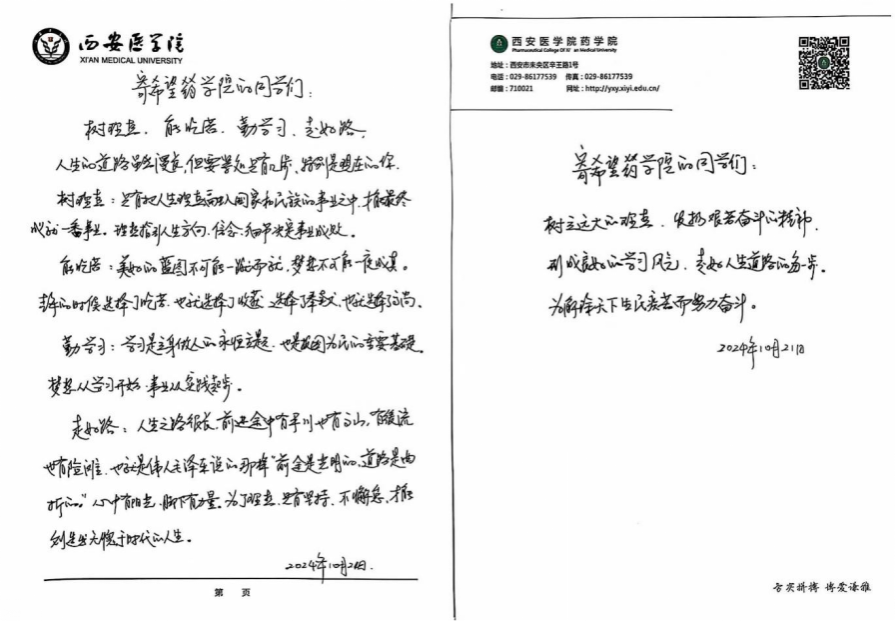 西安医学院
XI'AN MEDICAL UNIVERSITY
寄希望药学院的同学们：
树理想、能吃苦、勤学习、走好路。
人生的道路虽然漫长，但要紧处只有几步，特别是现在的你
树理想：只有把人生理想融入国家和民族的事业之中，才能最终
成就一番事业。理想指引人生方向，信念决定事业成败。
能吃苦：美好的蓝图不可能一蹴而就，梦想不可能一夜成真。
年轻的时候选择了吃苦，也就选择了收获，选择了奉献，也就选择了高尚。
勤学习：学习是立身做人的永恒主题，也是报国为民的重要基础。
梦想从学习开始，事业从实践起步。
走好路：人生之路很长，前进途中有平川也有高山，有缓流
也有险滩，也就是伟人毛泽东说的那样“前途是光明的，道路是曲
折的。”心中有阳光，脚下有力量。为了理想，只有坚持、不懈怠，才能
创造出无愧于时代的人生。
2024年10月21日.
第 页
西安医学院药学院
Pharmaceutical College Of Xi' an Medical University
地址：西安市未央区辛王路1号
电话：029-86177539 传真：029-86177539
邮编：710021 网址：http://yxy.xiyi.edu.cn/
寄希望药学院的同学们：
树立远大的理想，发扬艰苦奋斗的精神，
形成良好的学习风气，走好人生道路的每一步。
为解除天下生民疾苦而努力奋斗。
2024年10月21日
博爱谦雅